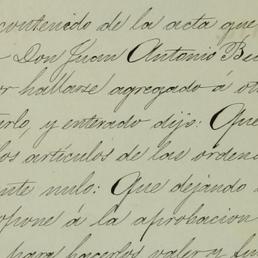 contenido de la acta que
Don Juan Antonio Be
or hallarse agregado á ot
arlo, y enterado dijo: Que
los artículos de las ordena
nte nulo: Que dejando
opone á la aprobacion
para hacerlos valer y fu